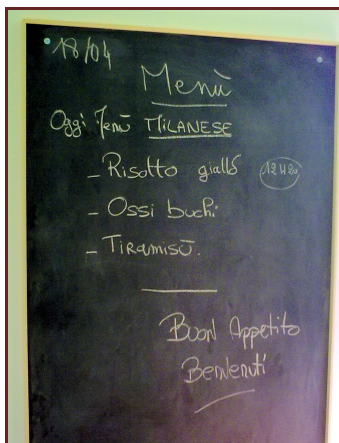 18/04
Menù
Oggi Menù MILANESE
- Risotto giallo
12 H 30
- Ossi buchi
- Tiramisù.
Buon Appetito
Benvenuti